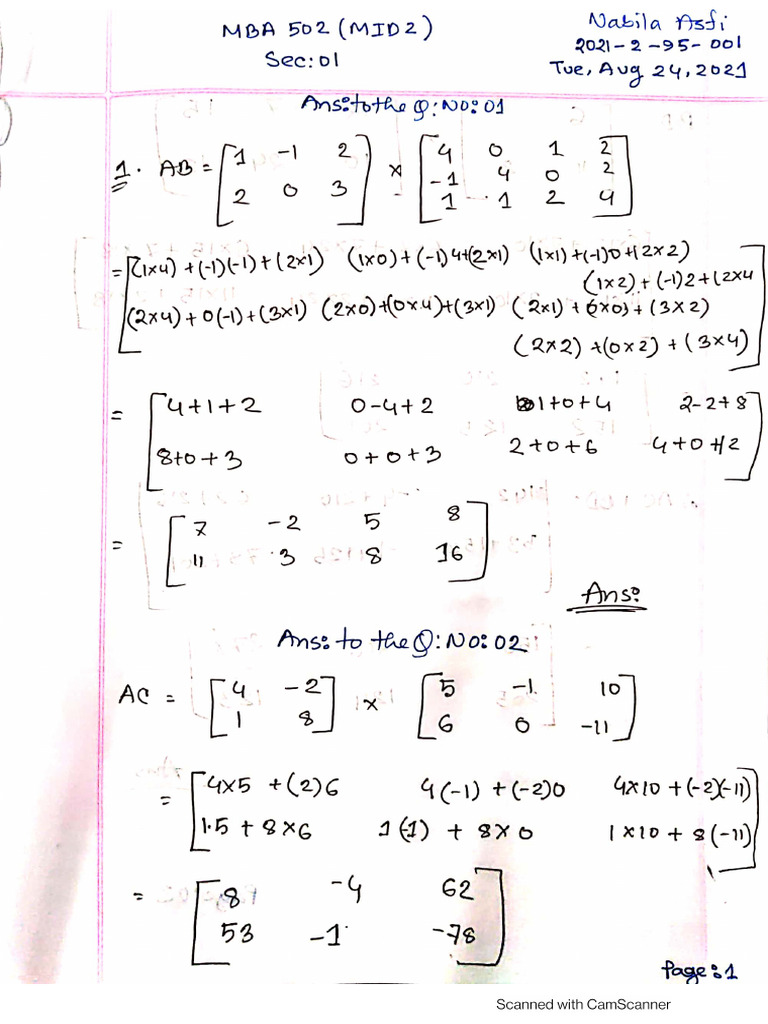 MBA 502 (MID2)
Sec: 01
Nabila Asfi
2021-2-95-001
Tue, Aug 24, 2021
Ans: to the Q: NO: 01
1. AB = [1 -1 2 × [4 0 1 2
2 0 3] -1 4 0 2
1 1 2 4]
= [(1x4) + (-1)(-1) + (2x1) (1x0) + (-1)4+(2x1) (1x1) + (-1)0+(2x2)
(1x2) + (-1)2 + (2x4
(2x4) + 0(-1) + (3x1) (2x0)+(0x4)+(3x1) (2x1) + (0x0) + (3x2)
(2x2) + (0x2) + (3x4)]
= [4+1+2 0-4+2 1+0+4 2-2+8
8+0+3 0+0+3 2+0+6 4+0+12]
= [7 -2 5 8
11 3 8 16]
Ans:
Ans: to the Q: NO: 02
AC = [4 -2 × [5 -1 10
1 8] 6 0 -11]
= [4x5 + (2)6 4(-1) + (-2)0 4x10 + (-2)(-11)
1.5 + 8x6 1(-1) + 8x0 1x10 + 8(-11)]
= [8 -4 62
53 -1 -78]
Page: 1
Scanned with CamScanner